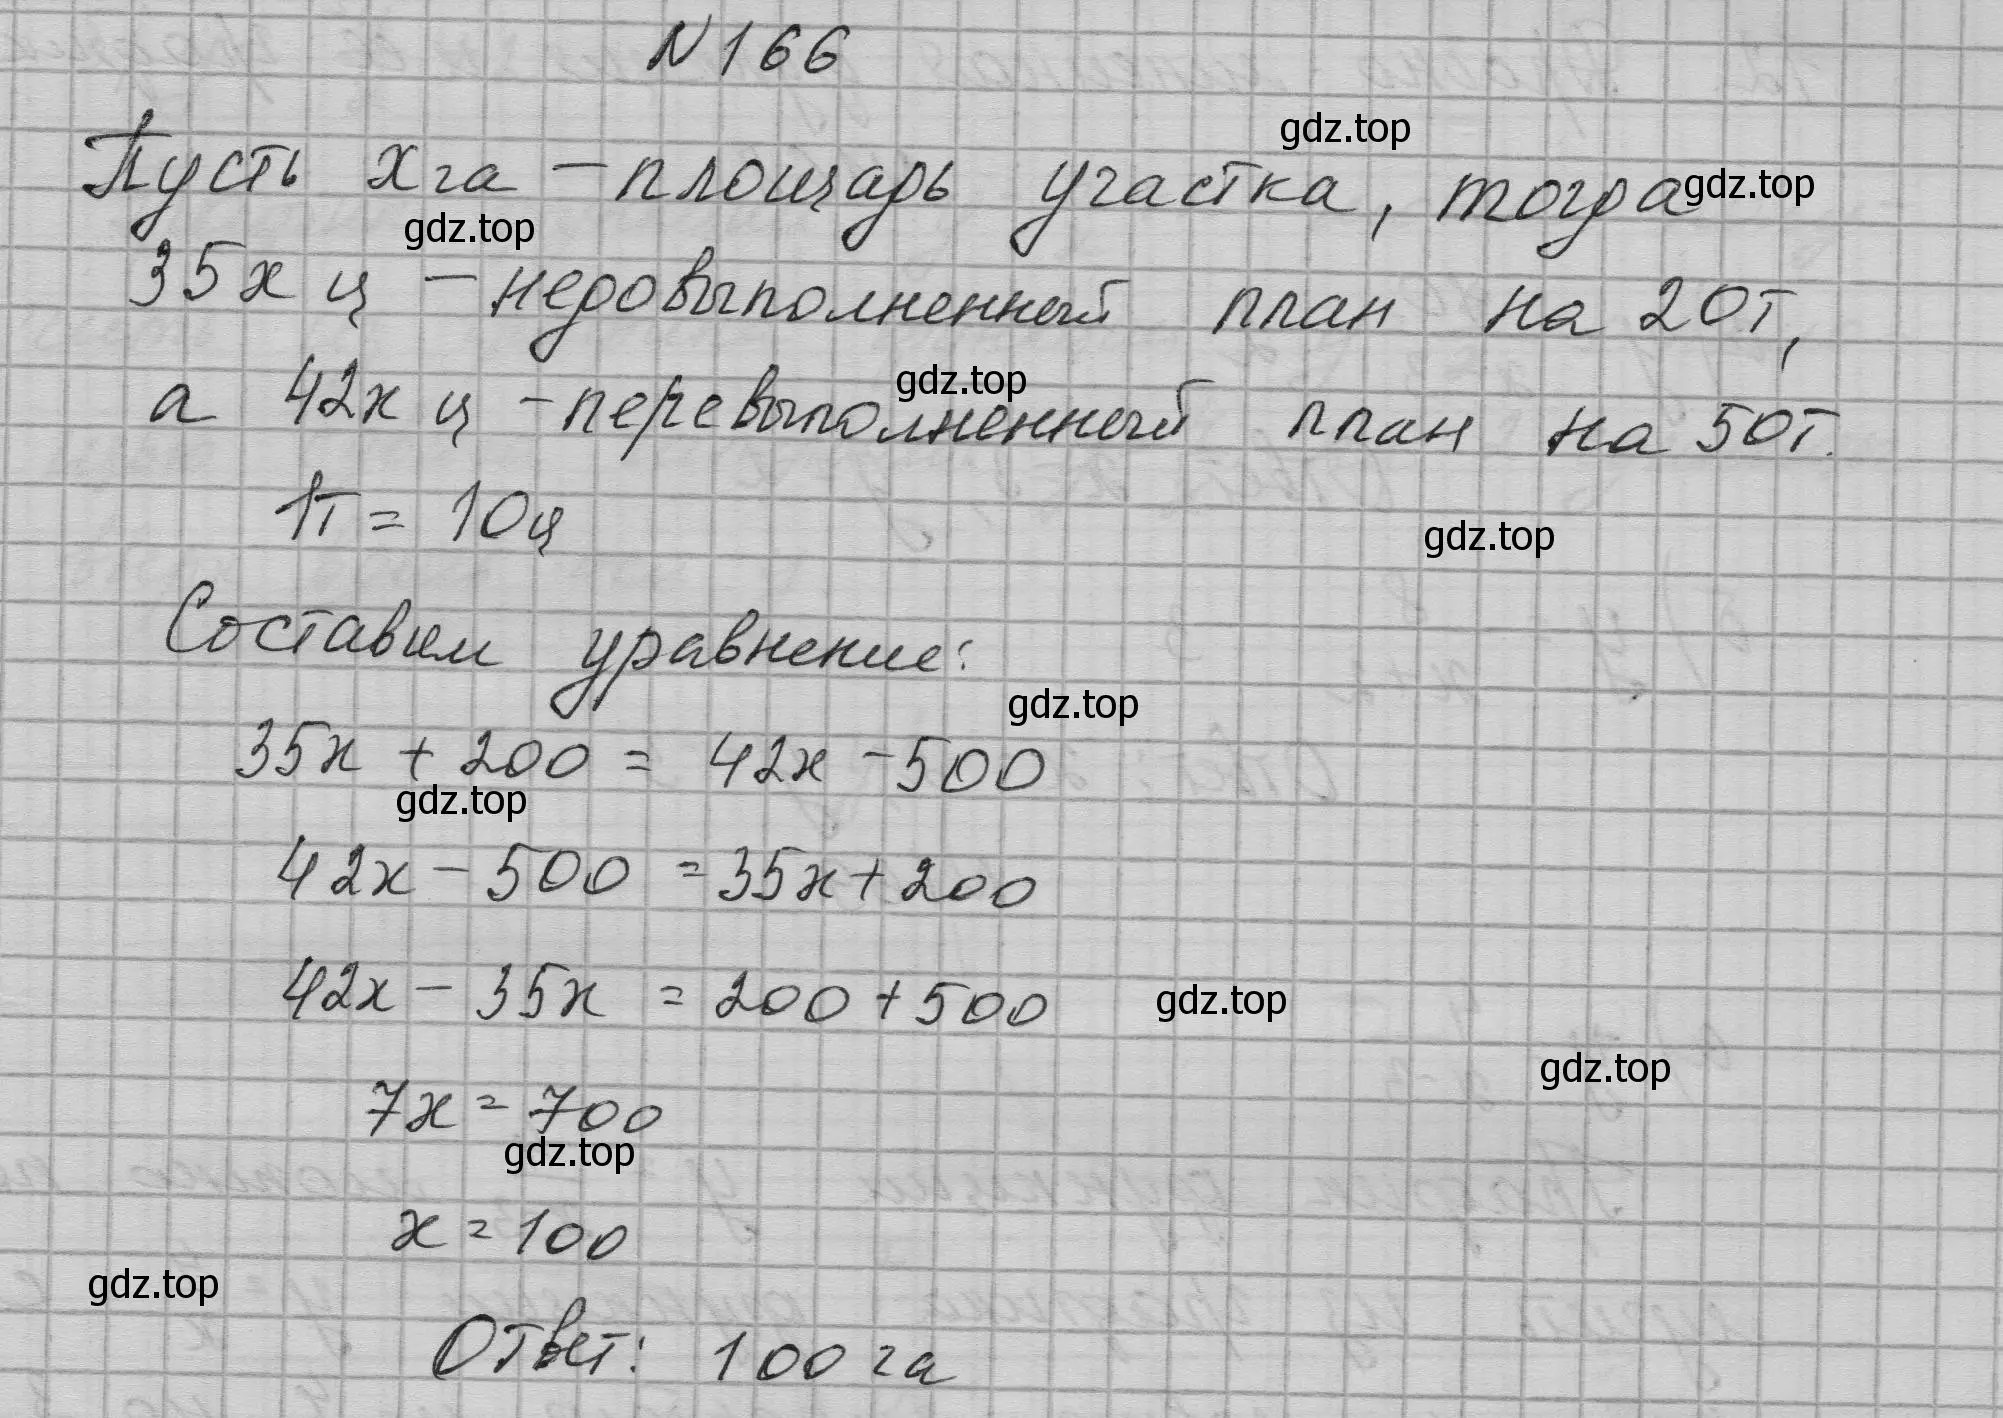 N 166
gdz.top
Пусть x га – площадь участка, тогда
gdz.top
gdz.top
35x ц – недовыполненный план на 20т,
gdz.top
а 42x ц – перевыполненный план на 50т.
1т = 10ц
gdz.top
Составим уравнение:
gdz.top
35x + 200 = 42x - 500
gdz.top
42x - 500 = 35x + 200
42x - 35x = 200 + 500
gdz.top
gdz.top
7x = 700
gdz.top
x = 100
gdz.top
Ответ: 100 га